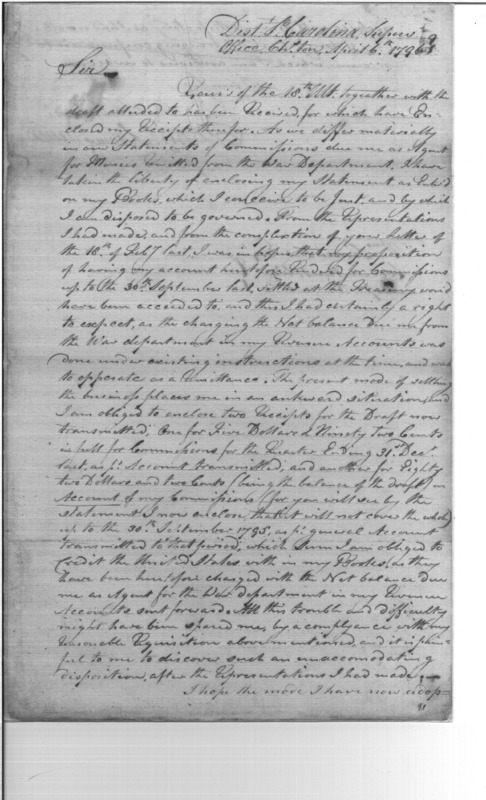 Dist. So. Carolina, Supervr's
Office, Ch's ton, April 6th 1796
Sir
Yours of the 18th Ult. together with the
draft alluded to has been Received, for which have En-
closed my Receipts therefor. As we differ materially
in our Statements of Commissions due me as Agent
for Monies remitted from the War Department, I have
taken the liberty of enclosing my Statement as Ent'd
on my Books, which I conceive to be just, and by which
I am disposed to be governed. From the Representations
I had made, and from the complection of your Letter of
the 18th of Feb'y last, I was in hopes that my proposition
of having my account heretofore Rendered for Commissions
up to the 30th September last, settled at the Treasury would
have been acceeded to, and this I had certainly a right
to expect, as the charging the Net balance due me from
the War department in my Revenue Accounts was
done under existing instructions at the time, and was
to opperate as a Remittance. The present mode of settling
the business places me in an awkward situation, and
I am obliged to enclose two Receipts for the Draft now
transmitted; One for Five Dollars & Ninety two Cents
in full for Commissions for the Quarter Ending 31st Decr
last, as pr Account transmitted, and another for Eighty
two Dollars and two Cents (being the balance of the draft) on
Account of my Commissions (for you will see by the
statement I now enclose that it will not cover the whole)
up to the 30th September 1795, as pr general Account
transmitted to that period, which Sum I am obliged to
credit the United States with in my Books, as they
have been heretofore charged with the Net balance due
me as Agent for the War department in my Revenue
Accounts sent forward. All this trouble and difficulty
might have been spared me, by a complyance with my
reasonable Requisition above mentioned, and it is pain-
ful to me to discover such an unaccomodating
disposition, after the Representations I had made;—
I hope the mode I have now adop=